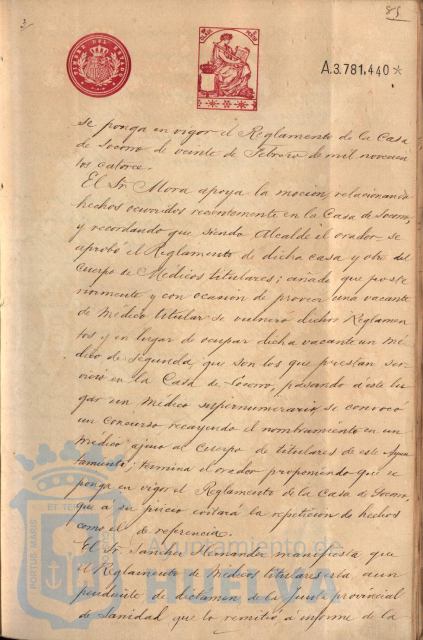 85
TIMBRE DEL ESTADO
A.3.781.440*
se ponga en vigor el Reglamento de la Casa
de Socorro de veinte de Febrero de mil novecien
tos catorce.
El Sr. Mora apoya la moción, relacionando
hechos ocurridos recientemente en la Casa de Socorro,
y recordando que siendo Alcalde el orador se
aprobó el Reglamento de dicha casa y otro del
Cuerpo de Médicos titulares; añade que poste
riormente y con ocasion de proveer una vacante
de Médico titular se vulneró dichos Reglamen
tos y en lugar de ocupar dicha vacante un mé
dico de segunda, que son los que prestan ser
vicio en la Casa de Socorro, pasando a este lu
gar un médico supernumerario, se convocó
un Concurso recayendo el nombramiento en un
médico ajeno al Cuerpo de titulares de este Ayun
tamiento; termina el orador proponiendo que se
ponga en vigor el Reglamento de la Casa de Socorro,
que a su juicio evitará la repetición de hechos
como el de referencia.
El Sr. Sanchez Hernandez manifiesta que
el Reglamento de Médicos titulares está aun
pendiente de dictamen de la Junta provincial
de Sanidad que lo remitió a informe de la
PORTUS MARIS ET TERRAE
Ayuntamiento de
HUELVA